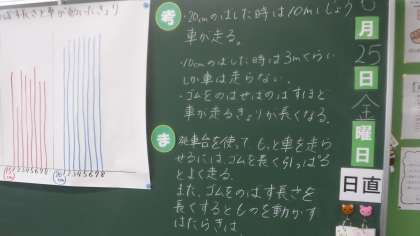 ばす長さと車が動いたきょり
考
・20cmのはした時は10mいじょう
車が走る。
・10cmのはした時は3mくらい
しか車は走らない。
・ゴムをのばせばのはすほど
車が走るきょりが長くなる。
ま
発車台を使って もっと車を走ら
せるには、ゴムを長く引っぱる
とよく走る。
また、ゴムをのばす長さを
長くするとものを動かす
はたらきは
12345678
12345678
月
25
日
金
曜
日
日直